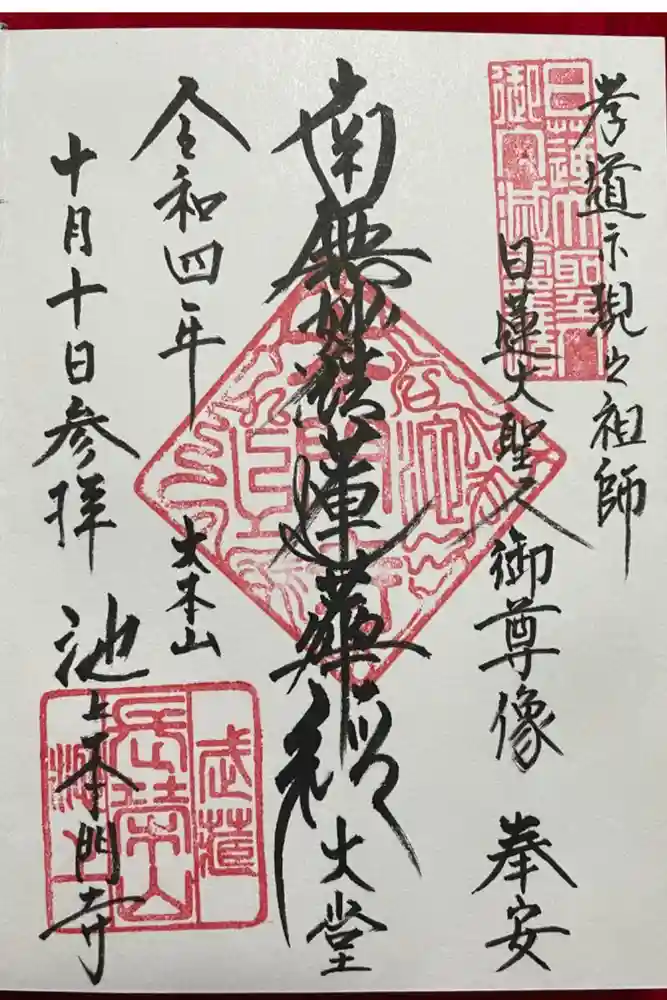 孝道示現之祖師
日蓮大聖人御尊像 奉安
日蓮大聖人
御入滅霊場
南無妙法蓮華経
大堂
令和四年
十月十日参拝
大本山
池上本門寺
武蔵
長栄山
池上